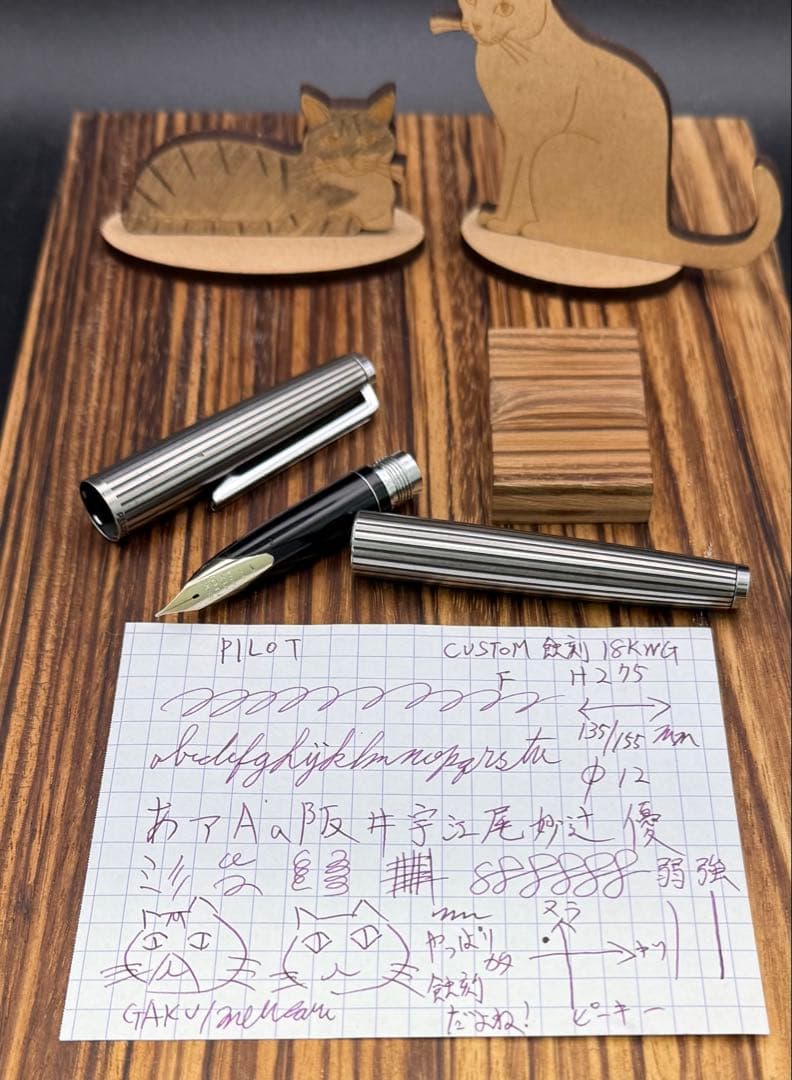 PILOT
CUSTOM 蝕刻 18KWG
F H275
135/155 mm
φ12
abcdefghijklmnopqrstu
あァAa阪井宇江尾妙辻優
弱 強
ヌラ
やっぱり
蝕刻
だよね!
カリ
ピーキー
GAKU/mercari